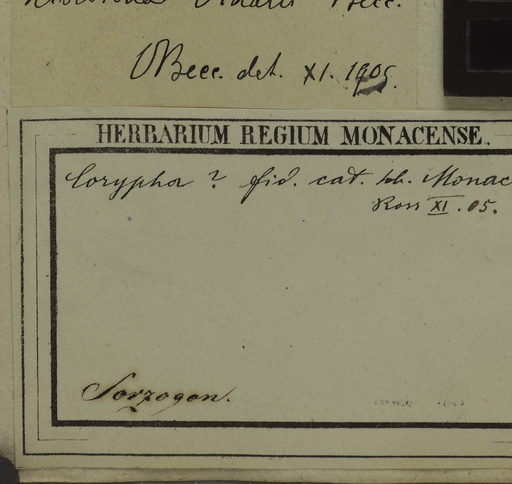 Becc.
OBecc. det. XI. 1905.
HERBARIUM REGIUM MONACENSE.
Corypha ? fid. cat. hb. Monac
Ross XI. 05.
Sorzogon.